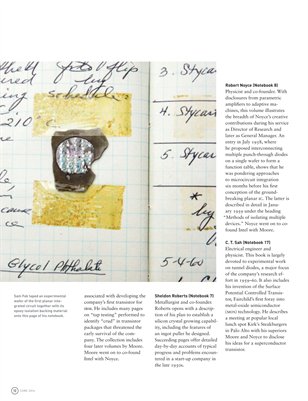 flip
3. Stycas
4. Stycas
5. Stycas
5-4-60
Glycol Phthalate
Sam Fok taped an experimental
wafer of the first planar inte-
grated circuit together with its
epoxy isolation backing material
onto this page of his notebook.
associated with developing the
company's first transistor for
sale. He includes many pages
on "tap testing" performed to
identify "crud" in transistor
packages that threatened the
early survival of the com-
pany. The collection includes
four later volumes by Moore.
Moore went on to co-found
Intel with Noyce.
Sheldon Roberts (Notebook 7)
Metallurgist and co-founder.
Roberts opens with a descrip-
tion of his plan to establish a
silicon crystal growing capabil-
ity, including the features of
an ingot puller he designed.
Succeeding pages offer detailed
day-by-day accounts of typical
progress and problems encoun-
tered in a start-up company in
the late 1950s.
Robert Noyce (Notebook 8)
Physicist and co-founder. With
disclosures from parametric
amplifiers to adaptive ma-
chines, this volume illustrates
the breadth of Noyce's creative
contributions during his service
as Director of Research and
later as General Manager. An
entry in July 1958, where
he proposed interconnecting
multiple punch-through diodes
on a single wafer to form a
function table, shows that he
was pondering approaches
to microcircuit integration
six months before his first
conception of the ground-
breaking planar IC. The latter is
described in detail in Janu-
ary 1959 under the heading
"Methods of isolating multiple
devices." Noyce went on to co-
found Intel with Moore.
C. T. Sah (Notebook 17)
Electrical engineer and
physicist. This book is largely
devoted to experimental work
on tunnel diodes, a major focus
of the company's research ef-
fort in 1959-60. It also includes
his invention of the Surface
Potential Controlled Transis-
tor, Fairchild's first foray into
metal-oxide semiconductor
(MOS) technology. He describes
a meeting at popular local
lunch spot Rick's Straksburgers
in Palo Alto with his superiors
Moore and Noyce to disclose
his ideas for a superconductor
transistor.